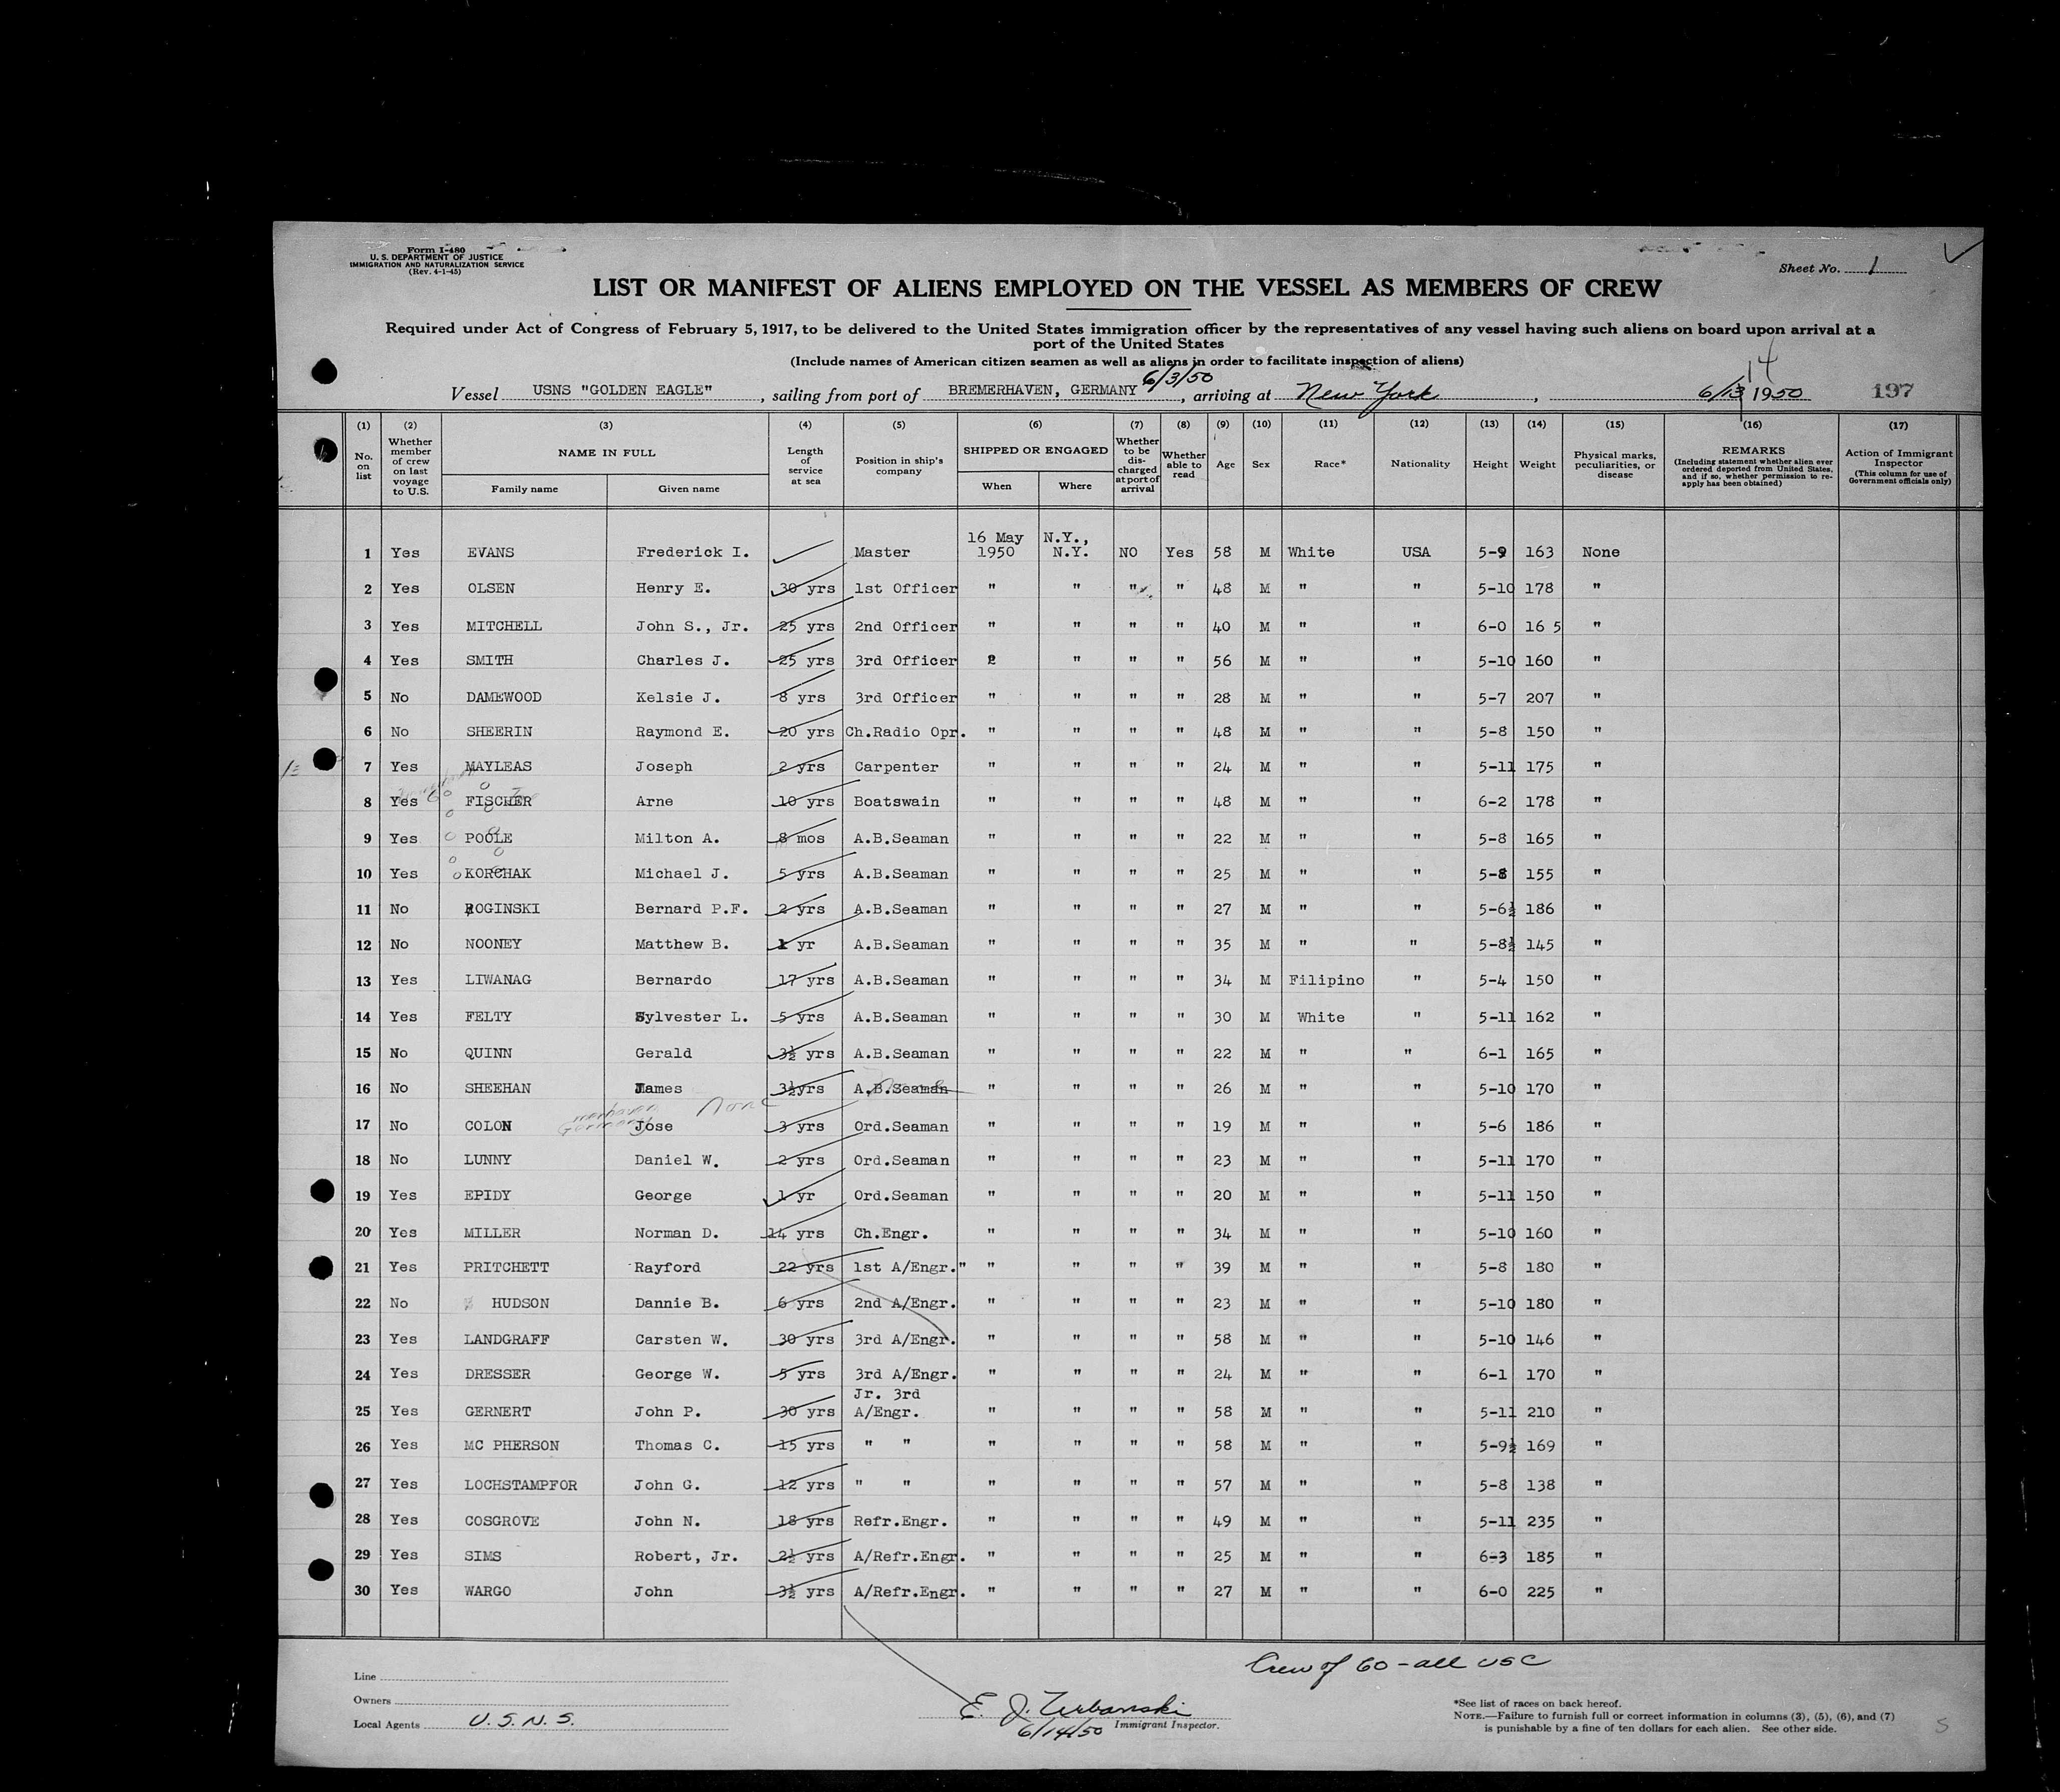 Form I-480
U. S. DEPARTMENT OF JUSTICE
IMMIGRATION AND NATURALIZATION SERVICE
(Rev. 4-1-45)
Sheet No. 1
LIST OR MANIFEST OF ALIENS EMPLOYED ON THE VESSEL AS MEMBERS OF CREW
Required under Act of Congress of February 5, 1917, to be delivered to the United States immigration officer by the representatives of any vessel having such aliens on board upon arrival at a
port of the United States
(Include names of American citizen seamen as well as aliens in order to facilitate inspection of aliens)
Vessel USNS "GOLDEN EAGLE", sailing from port of BREMERHAVEN, GERMANY 6/3/50, arriving at New York, 6/13 14 1950 197
(1) (2) (3) (4) (5) (6) (7) (8) (9) (10) (11) (12) (13) (14) (15) (16) (17)
No. on list Whether member of crew on last voyage to U.S. NAME IN FULL Family name Given name Length of service at sea Position in ship's company SHIPPED OR ENGAGED When Where Whether to be discharged at port of arrival Whether able to read Age Sex Race* Nationality Height Weight Physical marks, peculiarities, or disease REMARKS (Including statement whether alien ever ordered deported from United States, and if so, whether permission to re-apply has been obtained) Action of Immigrant Inspector (This column for use of Government officials only)
1 Yes EVANS Frederick I. Master 16 May 1950 N.Y., N.Y. NO Yes 58 M White USA 5-9 163 None
2 Yes OLSEN Henry E. 30 yrs 1st Officer " " " " 48 M " " 5-10 178 "
3 Yes MITCHELL John S., Jr. 25 yrs 2nd Officer " " " " 40 M " " 6-0 16 5 "
4 Yes SMITH Charles J. 25 yrs 3rd Officer " " " " 56 M " " 5-10 160 "
5 No DAMEWOOD Kelsie J. 8 yrs 3rd Officer " " " " 28 M " " 5-7 207 "
6 No SHEERIN Raymond E. 20 yrs Ch.Radio Opr. " " " " 48 M " " 5-8 150 "
7 Yes MAYLEAS Joseph 2 yrs Carpenter " " " " 24 M " " 5-11 175 "
8 Yes FISCHER Arne 10 yrs Boatswain " " " " 48 M " " 6-2 178 "
9 Yes POOLE Milton A. 8 mos A.B.Seaman " " " " 22 M " " 5-8 165 "
10 Yes KORCHAK Michael J. 5 yrs A.B.Seaman " " " " 25 M " " 5-8 155 "
11 No ROGINSKI Bernard P.F. 2 yrs A.B.Seaman " " " " 27 M " " 5-6½ 186 "
12 No NOONEY Matthew B. 1 yr A.B.Seaman " " " " 35 M " " 5-8½ 145 "
13 Yes LIWANAG Bernardo 17 yrs A.B.Seaman " " " " 34 M Filipino " 5-4 150 "
14 Yes FELTY Sylvester L. 5 yrs A.B.Seaman " " " " 30 M White " 5-11 162 "
15 No QUINN Gerald 3½ yrs A.B.Seaman " " " " 22 M " " 6-1 165 "
16 No SHEEHAN James 3½yrs A.B.Seaman " " " " 26 M " " 5-10 170 "
17 No COLON Jose 3 yrs Ord.Seaman " " " " 19 M " " 5-6 186 "
18 No LUNNY Daniel W. 2 yrs Ord.Seaman " " " " 23 M " " 5-11 170 "
19 Yes EPIDY George 1 yr Ord.Seaman " " " " 20 M " " 5-11 150 "
20 Yes MILLER Norman D. 14 yrs Ch.Engr. " " " " 34 M " " 5-10 160 "
21 Yes PRITCHETT Rayford 22 yrs 1st A/Engr." " " " " 39 M " " 5-8 180 "
22 No HUDSON Dannie B. 6 yrs 2nd A/Engr. " " " " 23 M " " 5-10 180 "
23 Yes LANDGRAFF Carsten W. 30 yrs 3rd A/Engr. " " " " 58 M " " 5-10 146 "
24 Yes DRESSER George W. 5 yrs 3rd A/Engr. " " " " 24 M " " 6-1 170 "
25 Yes GERNERT John P. 30 yrs Jr. 3rd A/Engr. " " " " 58 M " " 5-11 210 "
26 Yes MC PHERSON Thomas C. 15 yrs " " " " " " 58 M " " 5-9½ 169 "
27 Yes LOCHSTAMPFOR John G. 12 yrs " " " " " " 57 M " " 5-8 138 "
28 Yes COSGROVE John N. 18 yrs Refr.Engr. " " " " 49 M " " 5-11 235 "
29 Yes SIMS Robert, Jr. 2½ yrs A/Refr.Engr. " " " " 25 M " " 6-3 185 "
30 Yes WARGO John 3½ yrs A/Refr.Engr. " " " " 27 M " " 6-0 225 "
Crew of 60 - all USC
Line
Owners
Local Agents U.S.N.S.
E. J. Urbanski
6/14/50 Immigrant Inspector.
*See list of races on back hereof.
NOTE.—Failure to furnish full or correct information in columns (3), (5), (6), and (7)
is punishable by a fine of ten dollars for each alien. See other side.